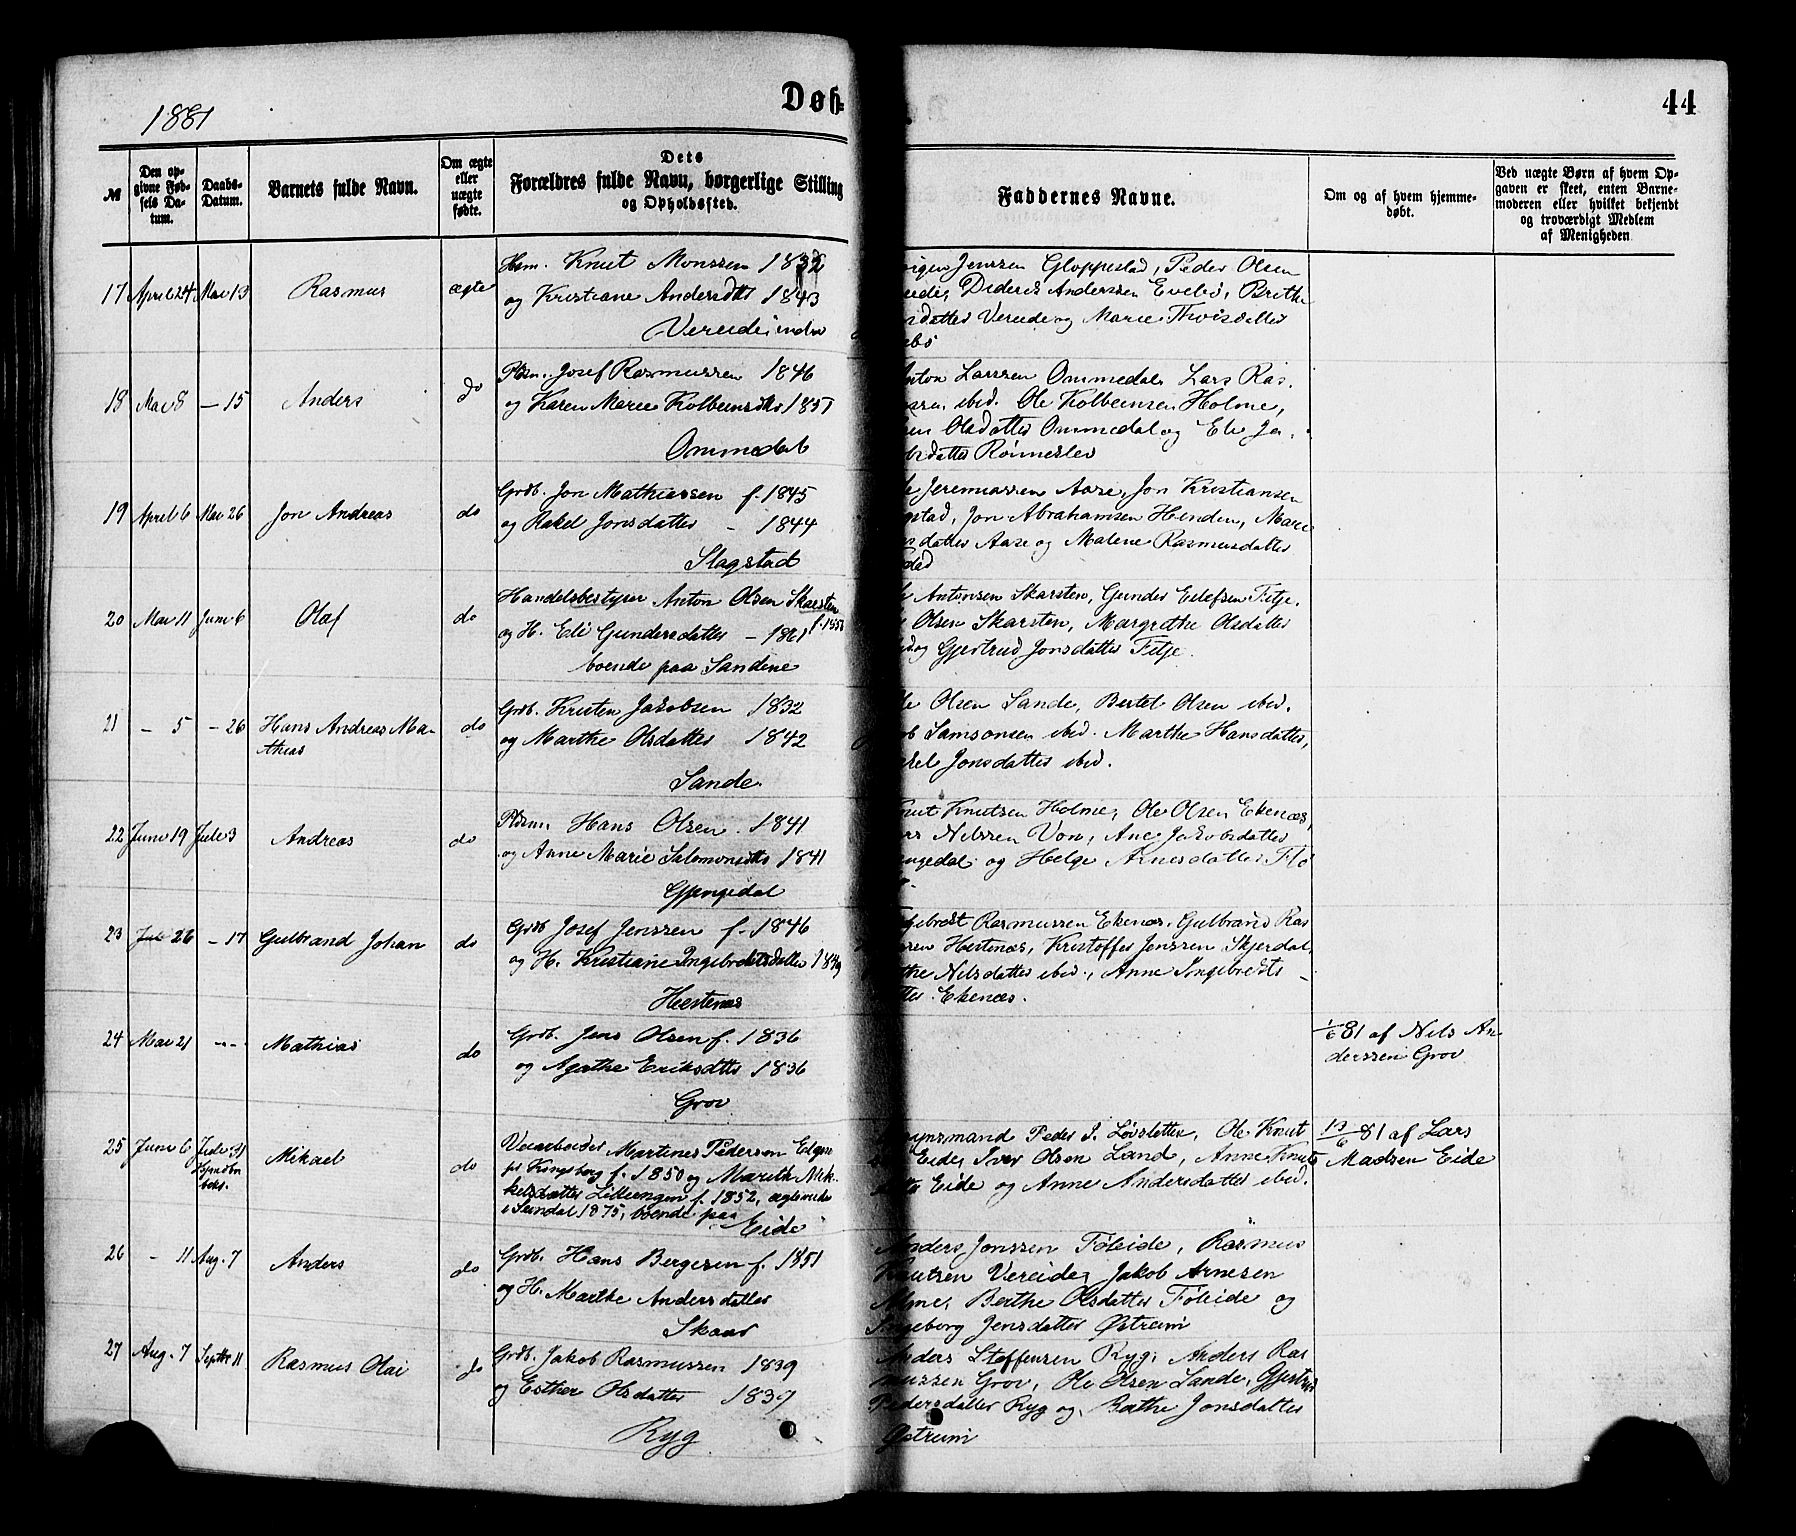 1881
Døb-
44
№
Den op-
givne Fød-
sels Da-
tum.
Daabs-
Datum.
Barnets fulde Navn.
Om ægte
eller
uægte
fødte.
Dets
Forældres fulde Navn, borgerlige Stilling
og Opholdssted.
Faddernes Navne.
Om og af hvem hjemme-
døbt.
Ved uægte Børn af hvem Op-
gaven er skeet, enten Barne-
moderen eller hvilket bekjendt
og troværdigt Medlem
af Menigheden
17 April 24 Mai 13 Rasmus ægte
Hsm. Knut Monssen 1832
og Kristiane Andersdtr 1843
Vereide indre
Jenssen Gloppestad, Peder Olsen
Diderik Anderssen Evebø, Brithe
Vereide og Marie Thoisdatter
18 Mai 8 — 15 Anders do
Pldsm. Josef Rasmussen 1846
og Karen Marie Kolbeinsdtr 1851
Ommedal
Anton Larssen Ommedal, Lars Ras.
ibid. Ole Kolbeinsen Holme,
Olsdatter Ommedal og Eli Ja.
Rønneklev
19 April 6 Mai 26 Jon Andreas do
Grdb. Jon Mathiassen f. 1845
og Rakel Jonsdatter — 1844
Slagstad
Jeremiassen Aase, Jon Kristiansen
Jon Abrahamsen Henden, Marie
Aase og Malene Rasmusdatter
20 Mai 11 Juni 6 Olaf do
Handelsbestyrer Anton Olsen Skarsten
og H. Eli Gundersdatter — 1861
boende paa Sandene
Antonsen Skarsten, Gunder Eilefsen Fitje.
Olsen Skarsten, Margrethe Olsdatter
og Gjertrud Jonsdatter Fitje.
21 — 5 — 26 Hans Andreas Ma-
thias do
Grdb. Kristen Jakobsen 1832
og Marthe Olsdatter 1842
Sande.
Olsen Sande, Bertel Olsen ibid.
Samsonsen ibid. Marthe Hansdatter,
Jonsdatter ibid.
22 Juni 19 Juli 3 Andreas do
Pldsm. Hans Olsen 1841
og Anne Marie Salomonsdtr 1841
Gjengedal
Knutsen Holme, Ole Olsen Ekenæs,
Nilssen Von, Ane Jakobsdatter
og Helge Arnesdatter Flø
23 26 — 17 Gulbrand Johan do
Grdb Josef Jenssen f. 1846
og H. Kristiane Ingebretsdatter 1849
Hestenæs
Rasmussen Ekenæs, Gulbrand Ras
Hestenæs, Kristoffer Jenssen Skjerdal,
Nilsdatter ibid., Anne Ingebrets-
Ekenæs.
24 Mai 21 Mathias do
Grdb. Jens Olsen f. 1836
og Agathe Eriksdtr 1836
Grov
1/6 81 af Nils An
derssen Grov
25 Juni 6 Juli 31 Mikael do
Veiarbeider Martinus Pedersen
Kongsberg f. 1850 og Marith Mik-
kelsdatter Lilleengen f. 1852, ægteviede
i Sundal 1875, boende paa
Eide
Peder S. Løvsletten, Ole Knut
Eide, Iver Olsen Land, Anne Knuts
Eide og Anne Andersdatter ibid.
13/6 81 af Lars
Madsen Eide
26 — 11 Aug. 7 Anders do
Grdb. Hans Bergesen f. 1851
og H. Marthe Andersdatter
Skaar
Anders Jonssen Føleide, Rasmus
Knutsen Vereide, Jakob Arnesen
Alme, Berthe Olsdatter Føleide og
Ingeborg Jensdatter Østreim
27 Aug. 7 Septbr 11 Rasmus Olai do
Grdb. Jakob Rasmussen 1839
og Esther Olsdatter 1837
Ryg
Anders Steffensen Ryg, Anders Ras
mussen Grov, Ole Olsen Sande, Gjertrud
Pedersdatter Ryg og Berthe Jonsdatter
Østreim